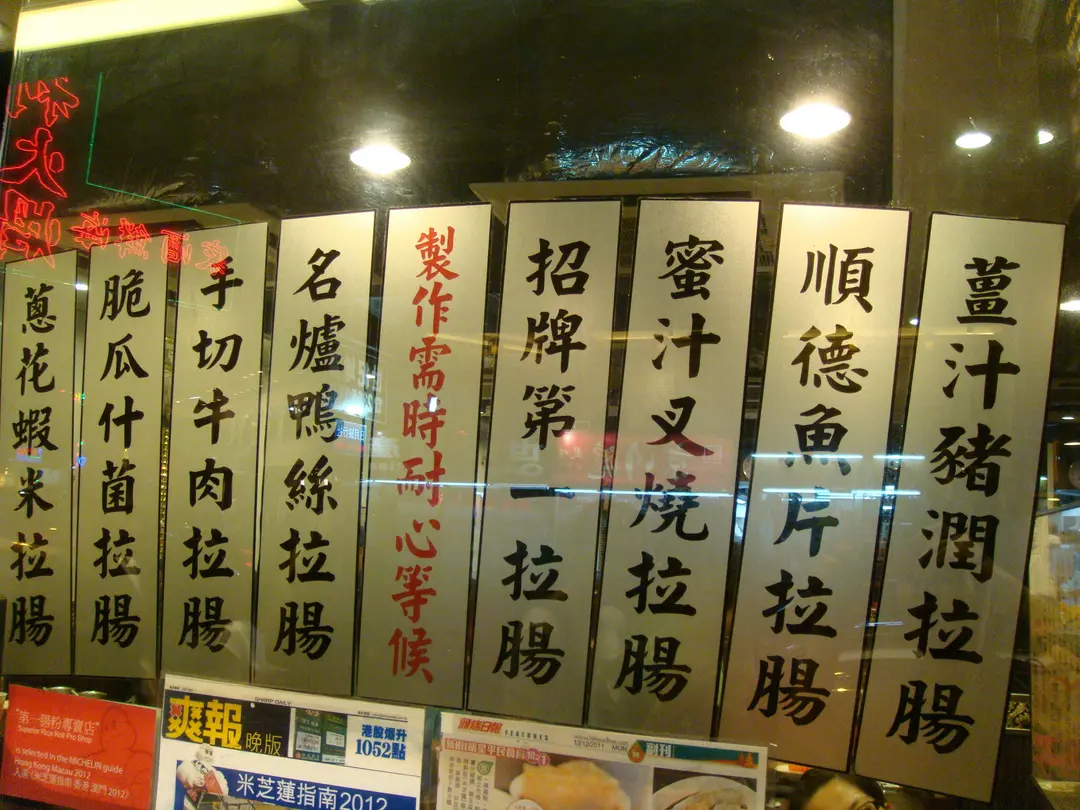 薑汁豬潤拉腸
順德魚片拉腸
蜜汁叉燒拉腸
招牌第一拉腸
製作需時耐心等候
名爐鴨絲拉腸
手切牛肉拉腸
脆瓜什菌拉腸
蔥花蝦米拉腸
"第一腸粉專賣店"
Superior Rice Roll Pro Shop
is selected in the MICHELIN guide
Hong Kong Macau 2012
入選《米芝蓮指南 香港 澳門 2012》
SHARP DAILY
爽報
晚版
港股爆升
1052點
米芝蓮指南2012
頭條日報
FEATURES
12/12/2011 MON
副刊